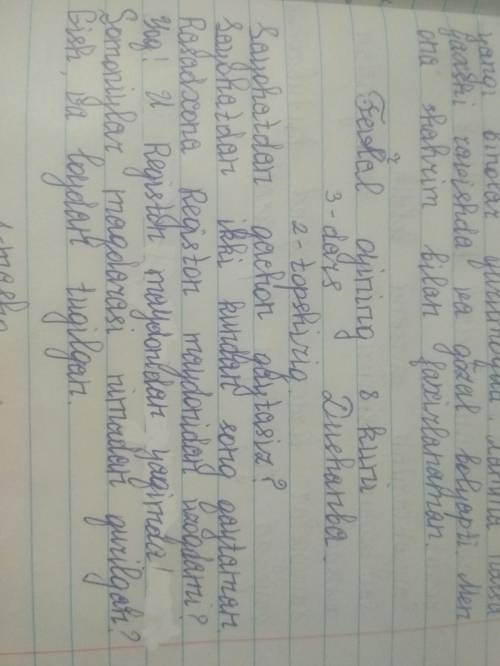 yaxshi ravishda va gózal bolyapti. Men
ona shahrim bilan faxrlanaman.
Fevral oyining 8 kuni
3-dars Dushanba.
2-topshiriq.
Sayohatdan qachon qaytasiz?
Sayohatdan ikki kundan song qaytaman.
Rasadxona Registon maydonidan uzoqdami?
Yoq! U Registon maydonidan yaqinda!
Somoniylar maqbarasi nimadan qurilgan?
Gisht va loydan